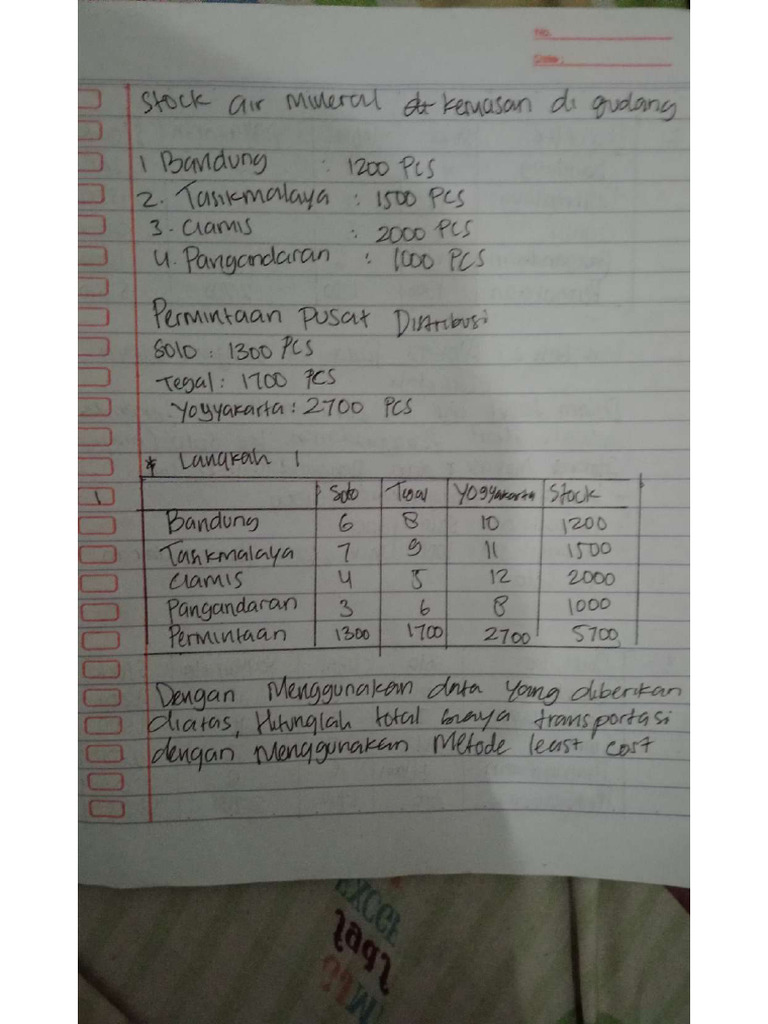 No.
Date:
Stock air mineral kemasan di gudang
1 Bandung : 1200 PCS
2. Tasikmalaya : 1500 PCS
3. Ciamis : 2000 PCS
4. Pangandaran : 1000 PCS
Permintaan Pusat Distribusi
Solo : 1300 PCS
Tegal : 1700 PCS
Yogyakarta : 2700 PCS
* Langkah 1
1 Solo Tegal Yogyakarta Stock
Bandung 6 8 10 1200
Tasikmalaya 7 9 11 1500
Ciamis 4 5 12 2000
Pangandaran 3 6 8 1000
Permintaan 1300 1700 2700 5700
Dengan Menggunakan data yang diberikan
diatas, Hitunglah total biaya transportasi
dengan menggunakan Metode least cost
EXCEL